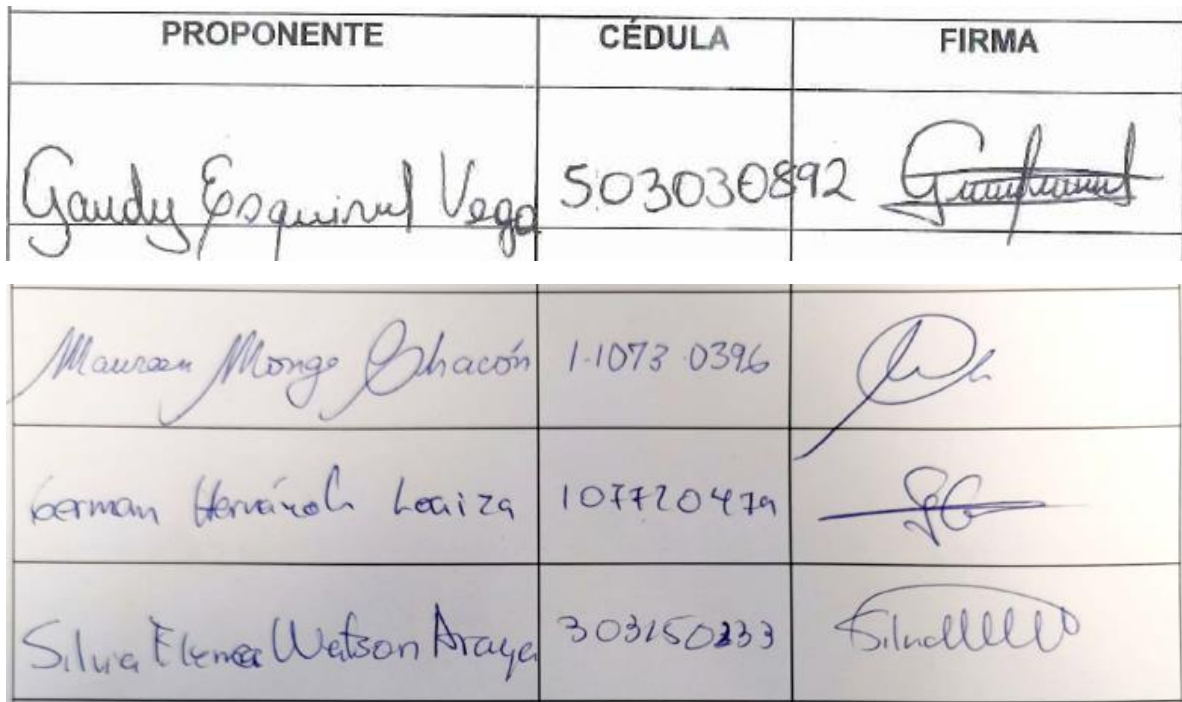 PROPONENTE CÉDULA FIRMA
Gaudy Esquivel Vega 503030892
Maureen Monge Chacón 1-1073 0396
German Hernández Loaiza 107720479
Silvia Elena Watson Araya 303150233 Silvia